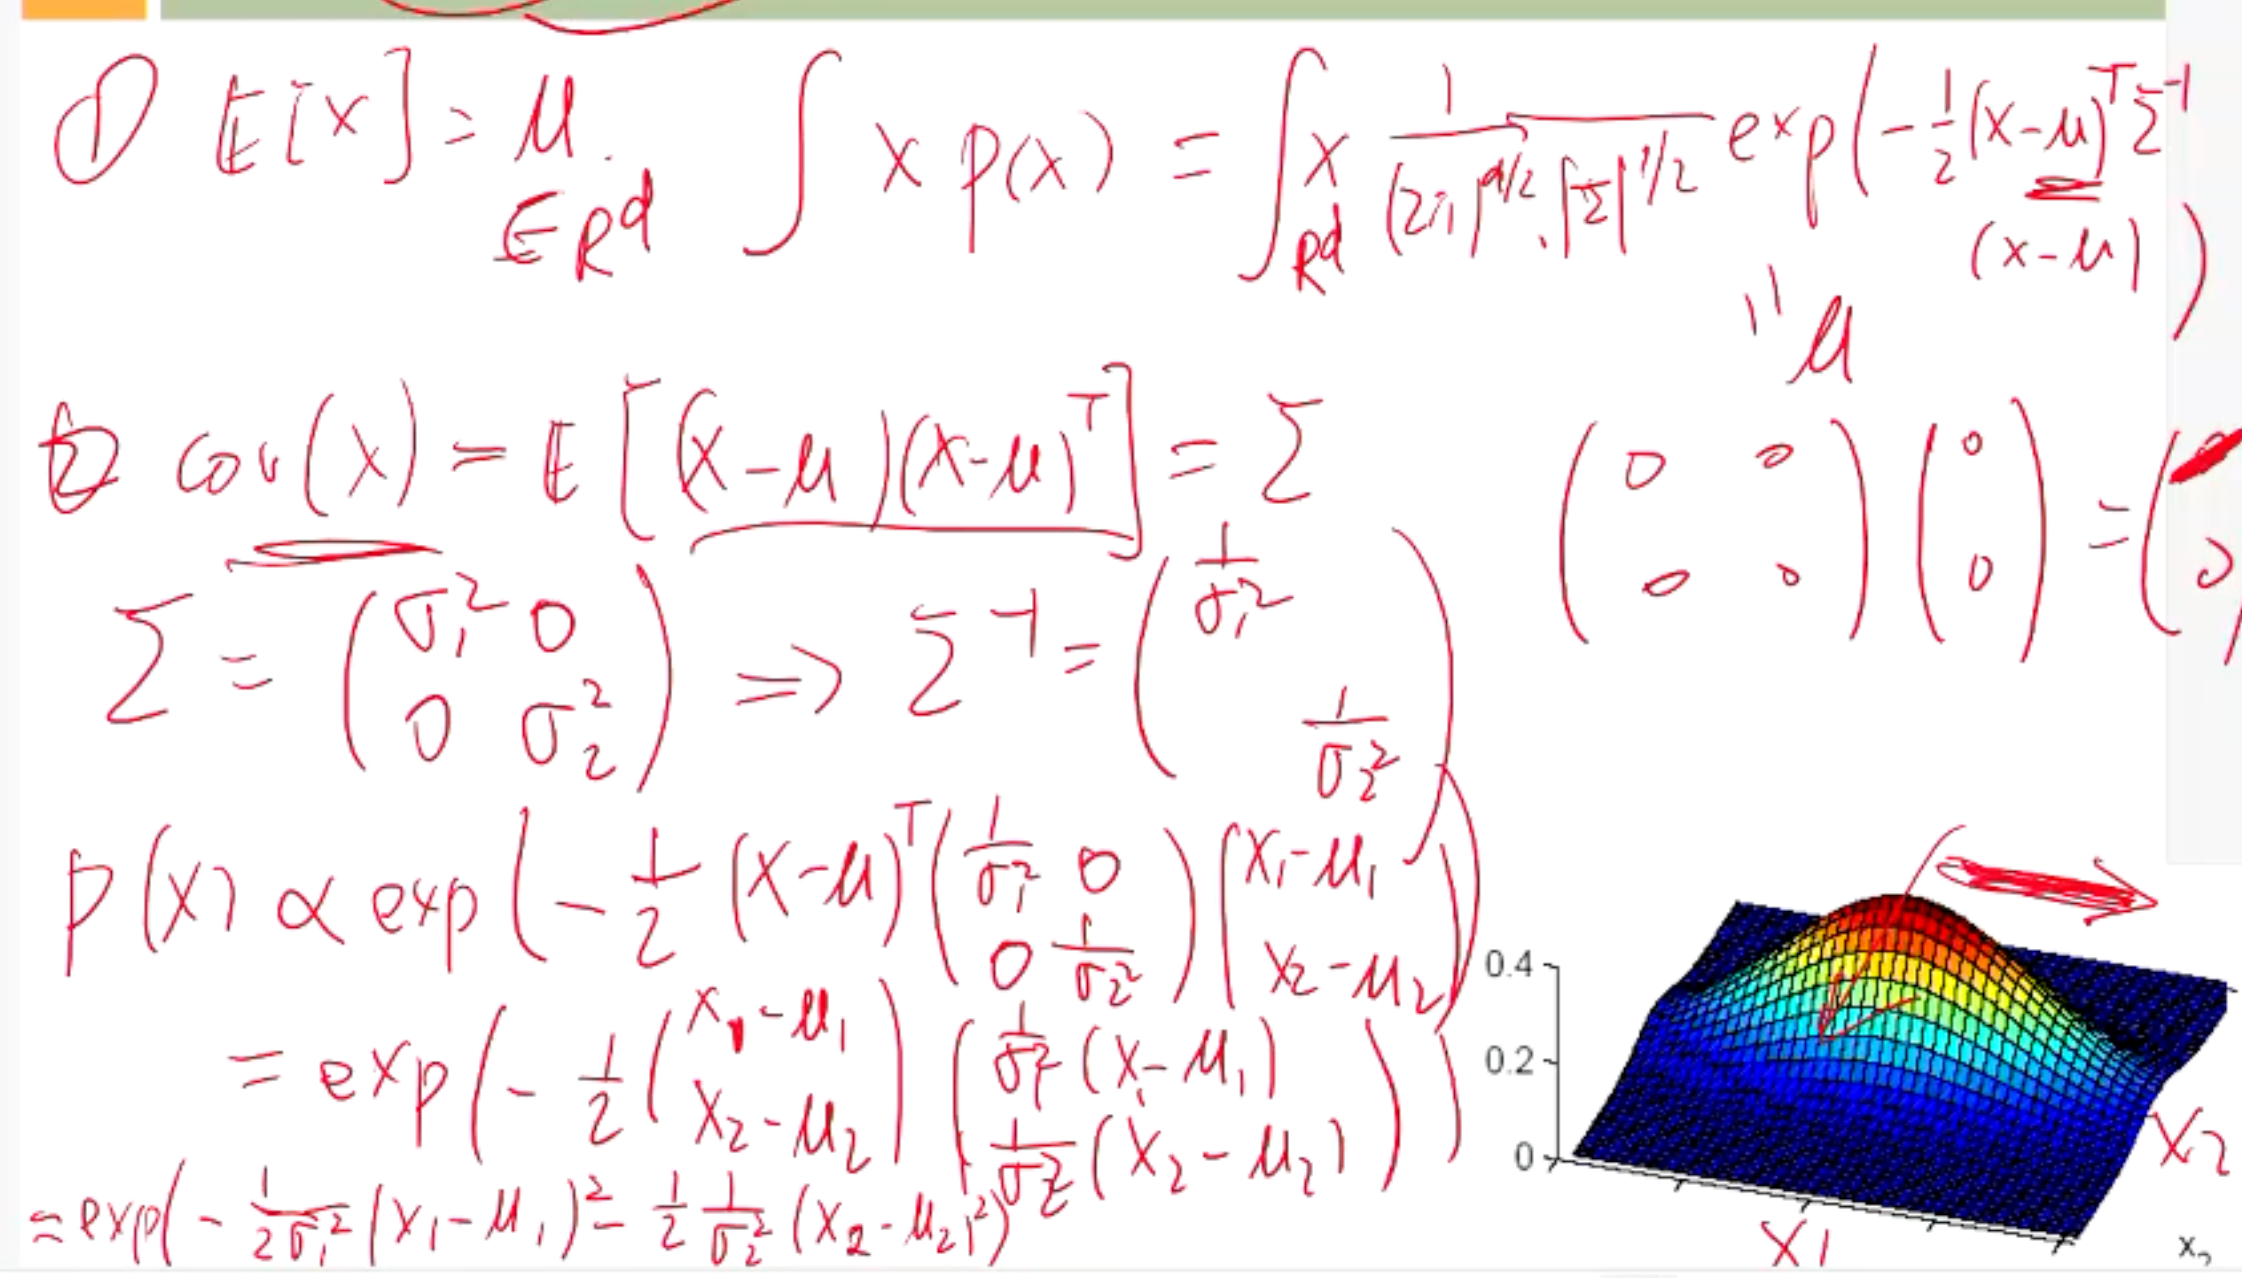 ① E[x] = μ. ∈ Rd ∫ x p(x) = ∫Rd x 1/((2π)^d/2 · |Σ|^1/2) exp(-1/2 (x-μ)^T Σ^-1 (x-μ))
" μ
② cov(x) = E[(x-μ)(x-μ)^T] = Σ
(0 0; 0 0) (0; 0) = ( 0
Σ = (σ1^2 0; 0 σ2^2) => Σ^-1 = (1/σ1^2 1/σ2^2)
p(x) ∝ exp(-1/2 (x-μ)^T (1/σ1^2 0; 0 1/σ2^2) (x1-μ1; x2-μ2))
= exp(-1/2 (x1-μ1; x2-μ2) (1/σ1^2 (x1-μ1); 1/σ2^2 (x2-μ2)))
= exp(-1/2σ1^2 (x1-μ1)^2 - 1/2 1/σ2^2 (x2-μ2)^2)
0.4
0.2
0
x2
x1
x2